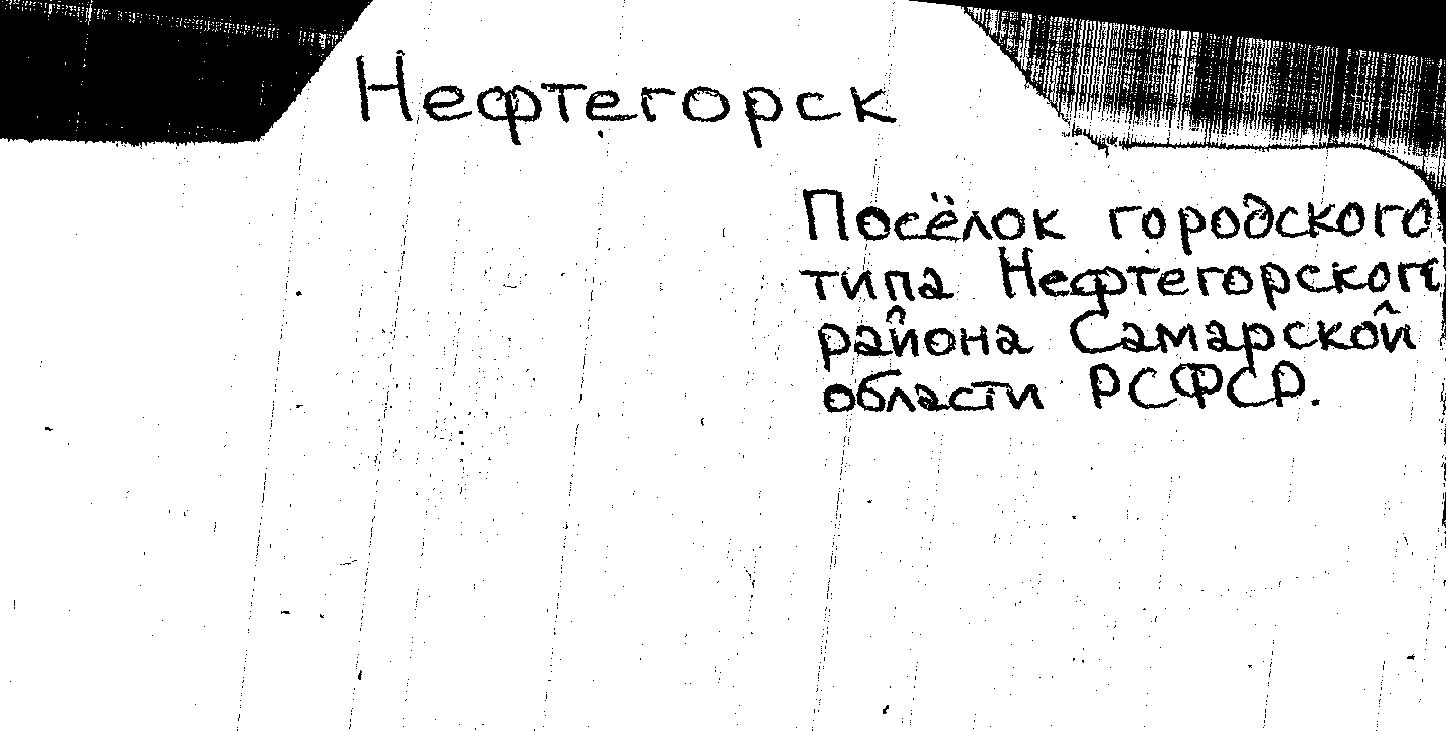 Нефтегорск
Посёлок городского
типа Нефтегорского
района Самарской
области РСФСР.